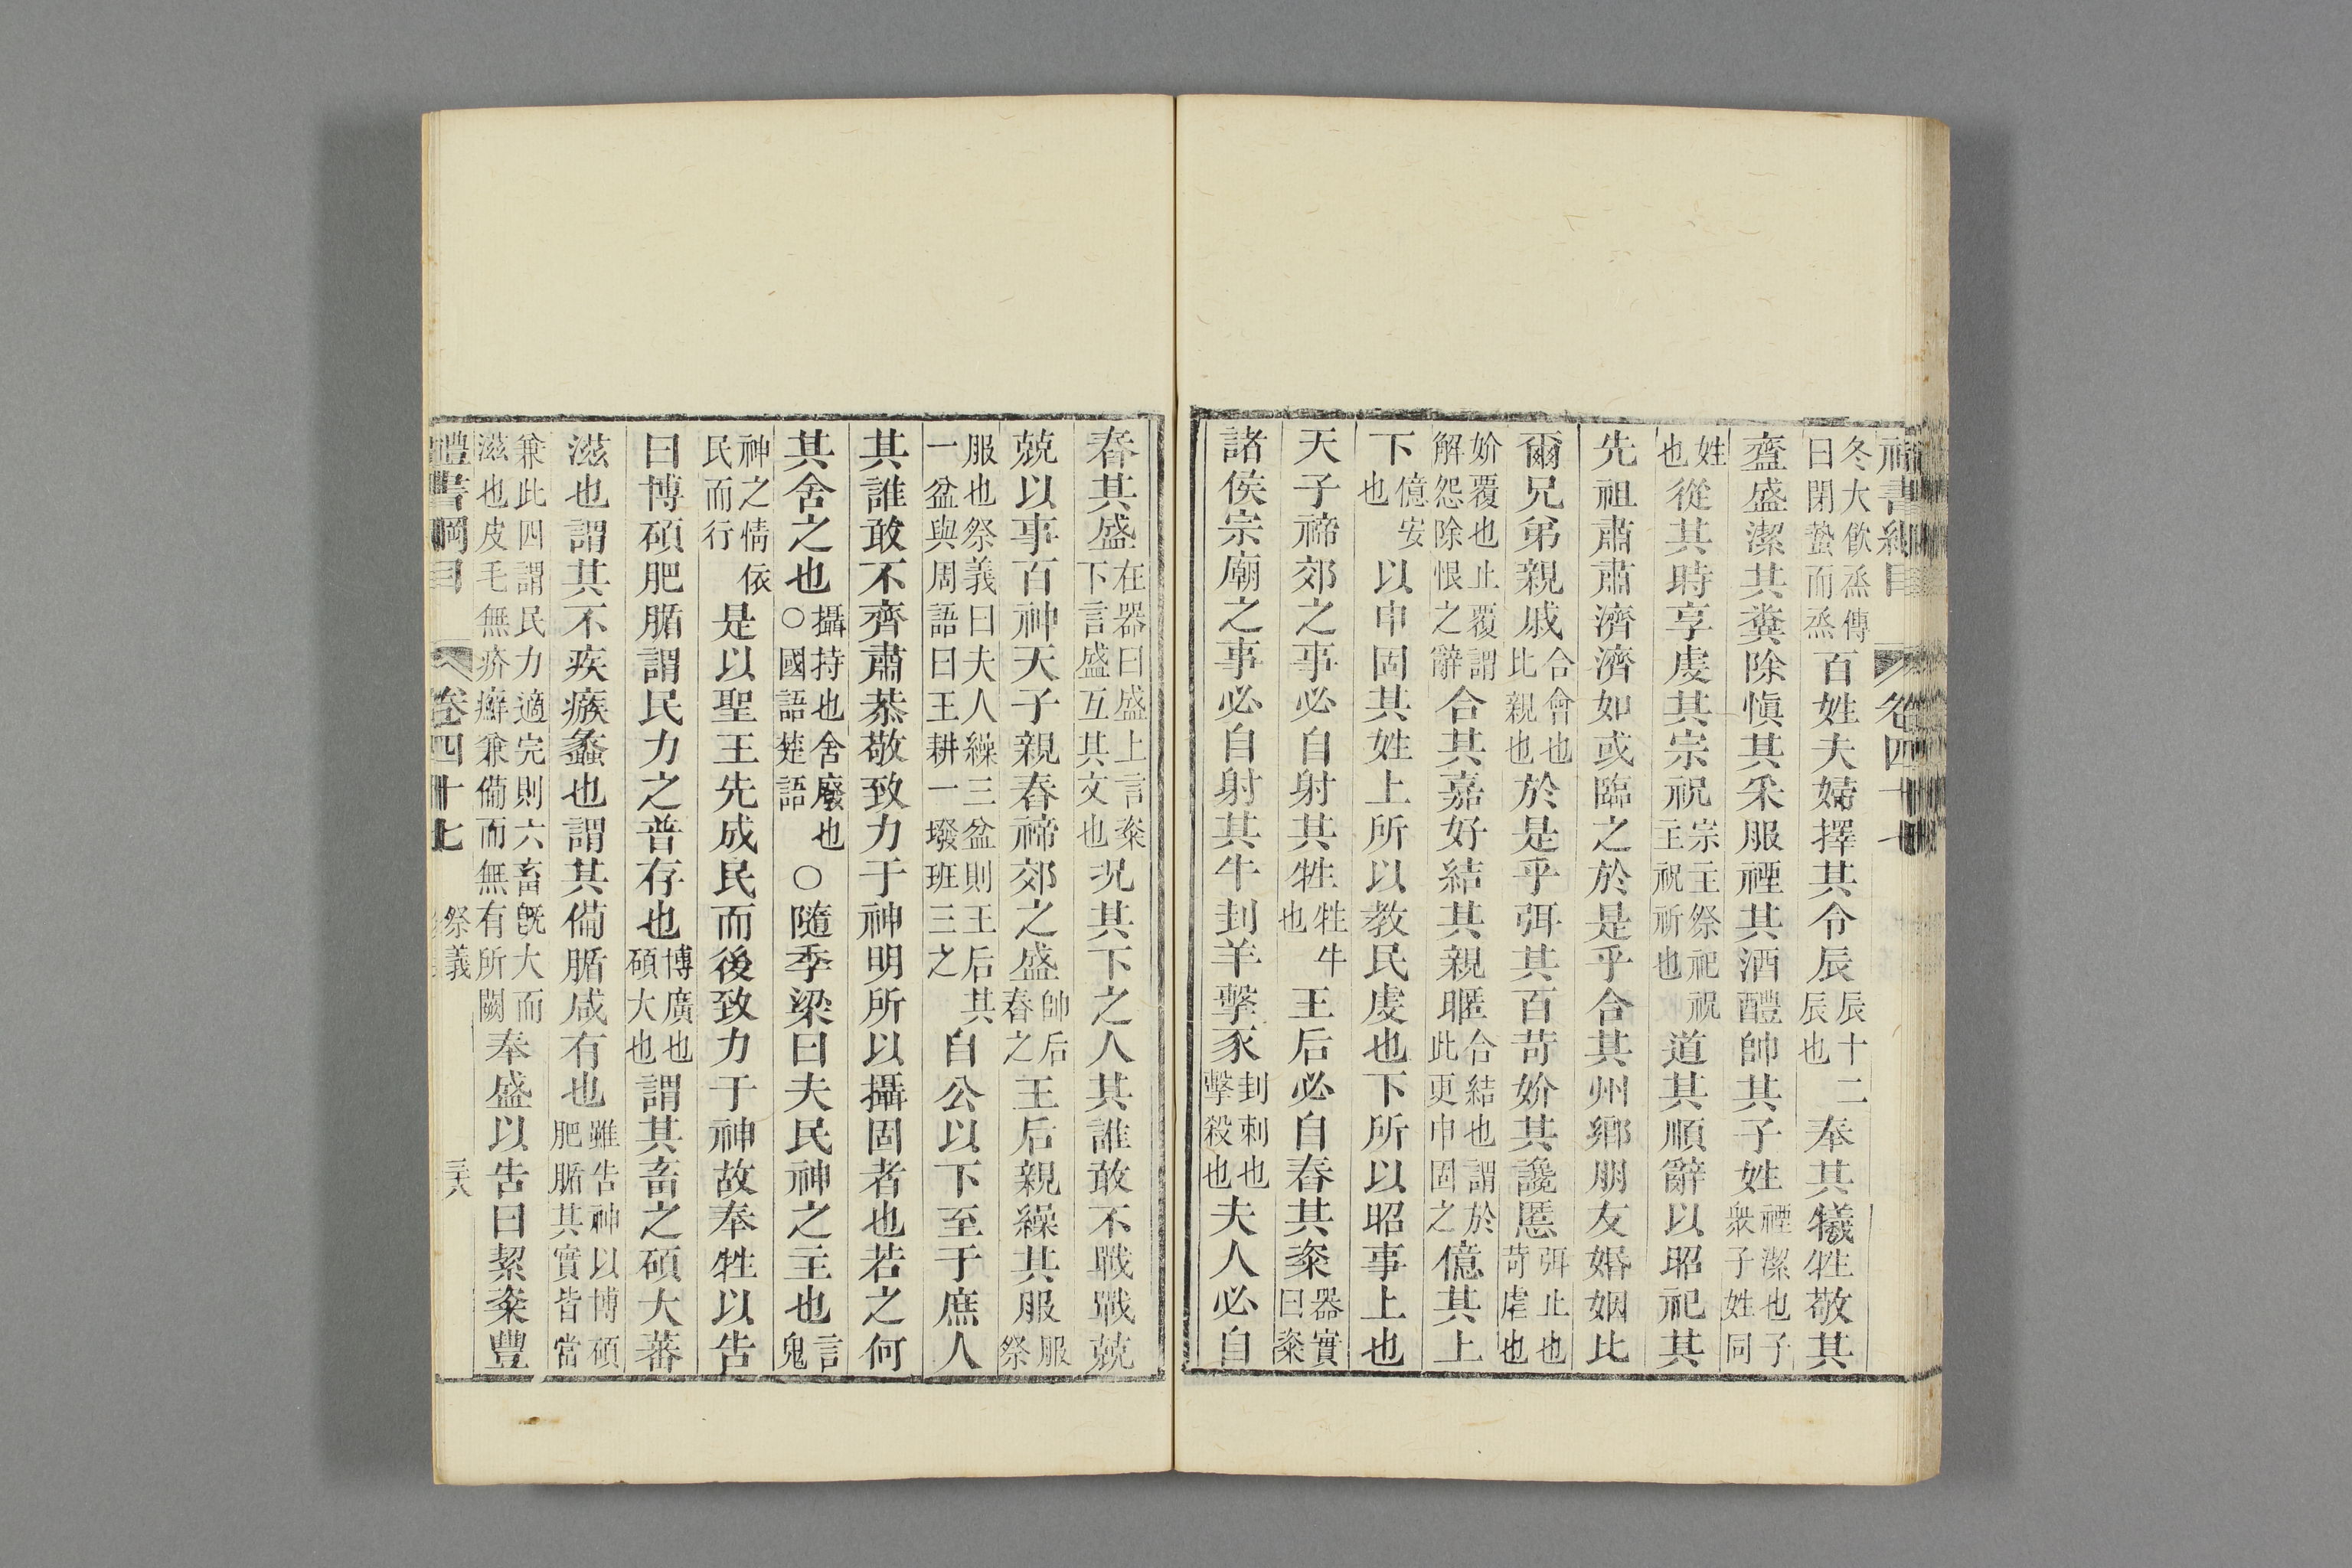 禮書綱目 卷四十七
冬大飮烝傳曰閉蟄而烝百姓夫婦擇其令辰辰十二辰也奉其犧牲敬其
齍盛潔其糞除愼其采服禋其酒醴帥其子姓禋潔也子衆子姓同
姓也從其時享虔其宗祝宗主祭祀祝主祝祈也道其順辭以昭祀其
先祖肅肅濟濟如或臨之於是乎合其州鄉朋友婚姻比
爾兄弟親戚合會也比親也於是乎弭其百苛妎其讒慝弭止也苛虐也
妎覆也止覆謂解怨除恨之辭合其嘉好結其親暱合結也謂於此更申固之億其上
下億安也以申固其姓上所以教民虔也下所以昭事上也
天子禘郊之事必自射其牲牲牛也王后必自舂其粢器實曰粢
諸侯宗廟之事必自射其牛刲羊擊豕刲刺也擊殺也夫人必自
舂其盛在器曰盛上言粢下言盛互其文也况其下之人其誰敢不戰戰兢
兢以事百神天子親舂禘郊之盛帥后舂之王后親繰其服服祭
服也祭義曰夫人繰三盆則王后其一盆與周語曰王耕一墢班三之自公以下至于庶人
其誰敢不齊肅恭敬致力于神明所以攝固者也若之何
其舍之也攝持也舍廢也○國語楚語○隨季梁曰夫民神之主也言鬼
神之情依民而行是以聖王先成民而後致力于神故奉牲以告
曰博碩肥腯謂民力之普存也博廣也碩大也謂其畜之碩大蕃
滋也謂其不疾瘯蠡也謂其備腯咸有也雖告神以博碩肥腯其實皆當
兼此四謂民力適完則六畜旣大而滋也皮毛無疥癬兼備而無有所闕奉盛以告曰絜粢豐
禮書綱目 卷四十七 祭義 三六